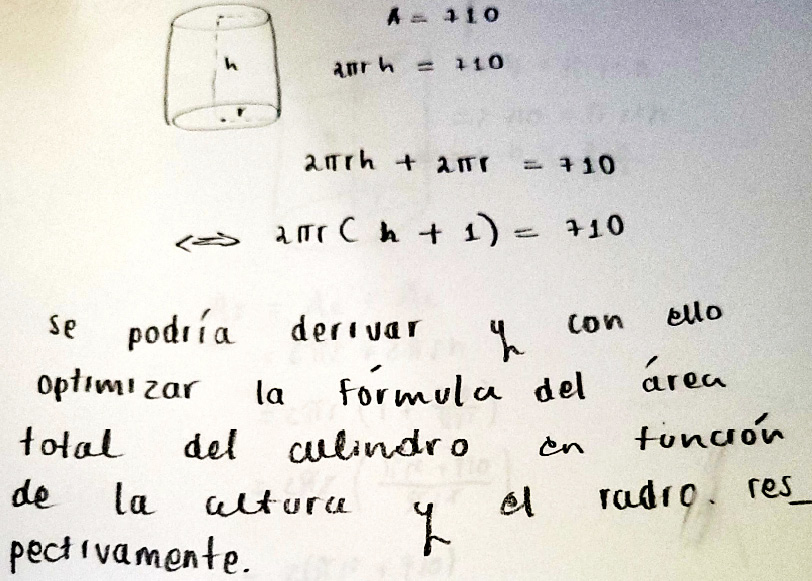 A = 710
h
2πrh = 710
r
2πrh + 2πr = 710
<=> 2πr( h + 1) = 710
se podría derivar y con ello
optimizar la fórmula del área
total del culindro en función
de la altura y el radio. res_
pectivamente.